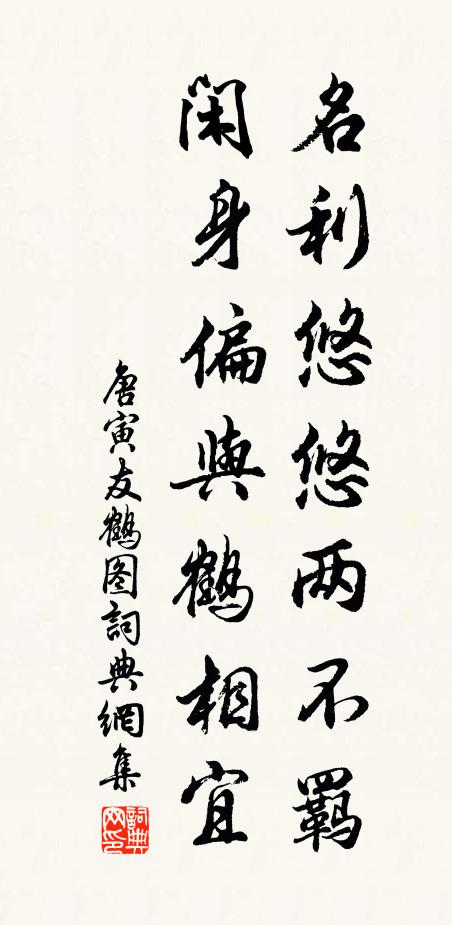 名利悠悠两不羁
闲身偏與鶴相宜
唐寅友鶴图詞典網集
詞典网印